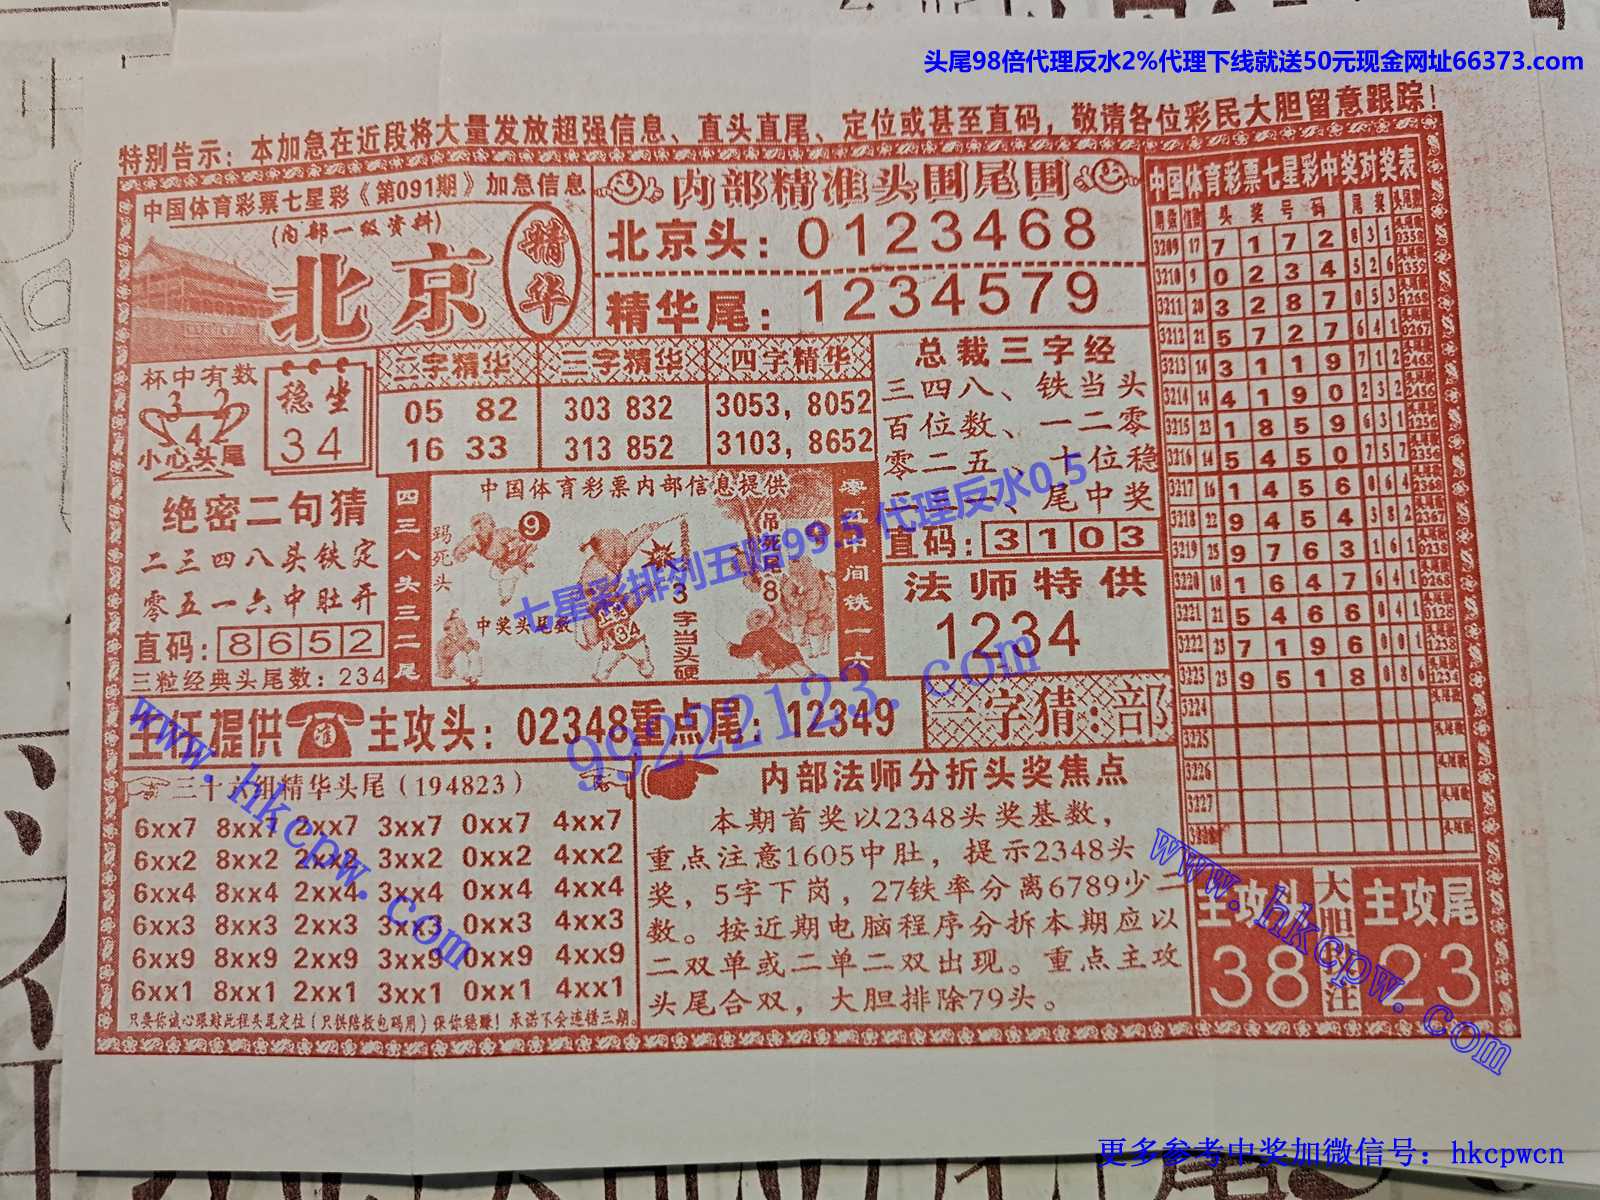 头尾98倍代理反水2%代理下线就送50元现金网址66373.com
特别告示：本加急在近段将大量发放超强信息、直头直尾、定位或甚至直码，敬请各位彩民大胆留意跟踪！
中国体育彩票七星彩《第091期》加急信息
(内部一级资料)
北京
精华
内部精准头围尾围
北京头：0123468
精华尾：1234579
杯中有数
3 2
4
小心头尾
稳坐
34
二字精华
05 82
16 33
三字精华
303 832
313 852
四字精华
3053, 8052
3103, 8652
总裁三字经
三四八、铁当头
百位数、一二零
零二五、十位稳
尾中奖
直码：3103
绝密二句猜
二三四八头铁定
零五一六中肚开
直码：8652
三粒经典头尾数：234
四三八头三二尾
中国体育彩票内部信息提供
踢死头
9
吊死尾
8
中奖头尾数
34
3字当头硬
中间铁一六
法师特供
1234
七星彩排列五赔99.5 代理反水0.5
主任提供
准
主攻头：02348重点尾：12349
一字猜：部
99222123.com
三十六组精华头尾（194823）
6xx7 8xx7 2xx7 3xx7 0xx7 4xx7
6xx2 8xx2 2xx2 3xx2 0xx2 4xx2
6xx4 8xx4 2xx4 3xx4 0xx4 4xx4
6xx3 8xx3 2xx3 3xx3 0xx3 4xx3
6xx9 8xx9 2xx9 3xx9 0xx9 4xx9
6xx1 8xx1 2xx1 3xx1 0xx1 4xx1
只要你诚心跟踪此组头尾定位(只供陪投包码用)保你稳赚！承诺不会连错三期。
内部法师分折头奖焦点
本期首奖以2348头奖基数，
重点注意1605中肚，提示2348头
奖，5字下岗，27铁率分离6789少二
数。按近期电脑程序分拆本期应以
二双单或二单二双出现。重点主攻
头尾合双，大胆排除79头。
中国体育彩票七星彩中奖对奖表
期数 值数 头奖号码 尾奖 头尾数
3209 17 7 1 7 2 8 3 1 头尾数 0358
3210 9 0 2 3 4 5 2 6 头尾数 1359
3211 20 3 2 8 7 0 5 3 头尾数 1268
3212 21 5 7 2 7 6 4 1 头尾数 0267
3213 14 3 1 1 9 7 1 2 头尾数 2468
3214 14 4 1 9 0 2 3 2 头尾数 2456
3215 23 1 8 5 9 6 3 1 头尾数 1256
3216 14 5 4 5 0 7 5 7 头尾数 2356
3217 16 1 4 5 6 0 6 4 头尾数 2368
3218 22 9 4 5 4 3 8 2 头尾数 2367
3219 25 9 7 6 3 1 6 1 头尾数 0238
3220 18 1 6 4 7 6 4 1 头尾数 0268
3221 21 5 4 6 6 0 4 1 头尾数 0128
3222 23 7 1 9 6 0 0 1 头尾数 1238
3223 23 9 5 1 8 0 8 6 头尾数 1234
3224 头尾数
3225 头尾数
3226 头尾数
3227 头尾数
头尾数
主攻头
38
大胆
注
主攻尾
23
www.hkcpw.com
www.hkcpw.com
更多参考中奖加微信号：hkcpwcn